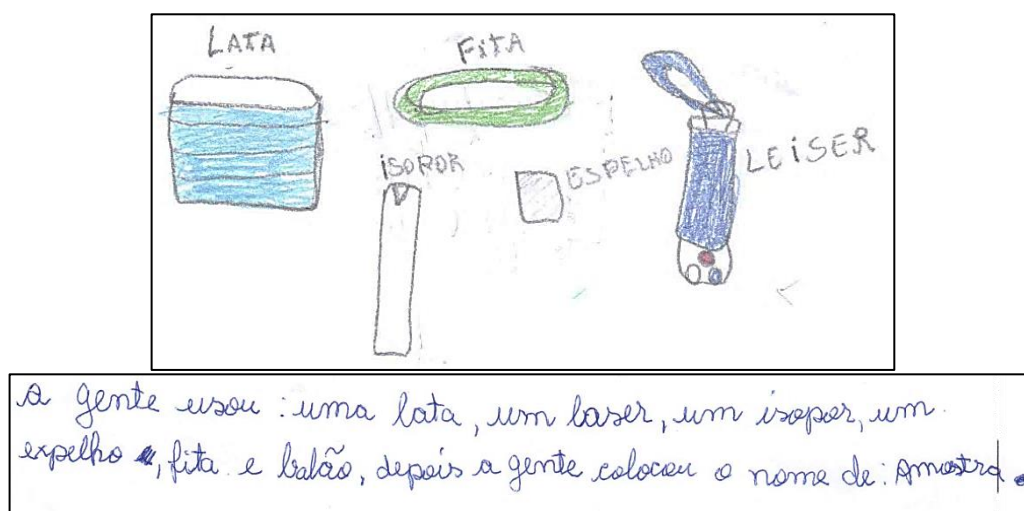 LATA
FITA
ISOPOR
ESPELHO
LEISER
A gente usou : uma lata, um laser, um isopor, um
expelho, fita e balão, depois a gente colocou o nome de: Amostra.